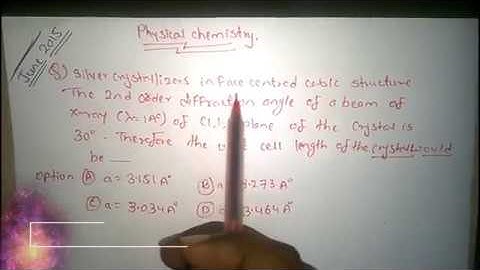 Physical chemistry.
June 2015
Q) Silver crystallizes in face centred cubic structure
The 2nd order diffraction angle of a beam of
x-ray (λ=1A°) of (1,1, plane of the crystal is
30°. Therefore the cell length of the crystal would
be
option (A) a = 3.151A° (B) a = 3.273A°
(C) a = 3.034A° (D) 3.464A°